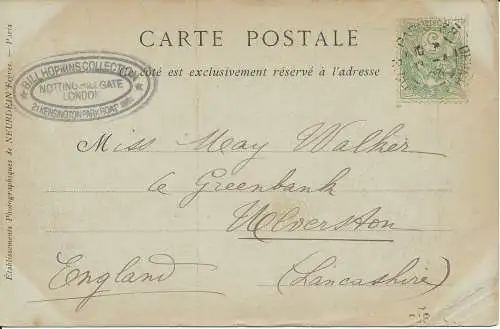 CARTE POSTALE
Ce côté est exclusivement réservé à l'adresse
BILL HOPKINS COLLECTION
NOTTING HILL GATE
LONDON
KENSINGTON PARK ROAD
Miss May Walker
6 Greenbank
Ulverston
England (Lancashire)
Établissements Photographiques de NEURDEIN Frères. — Paris